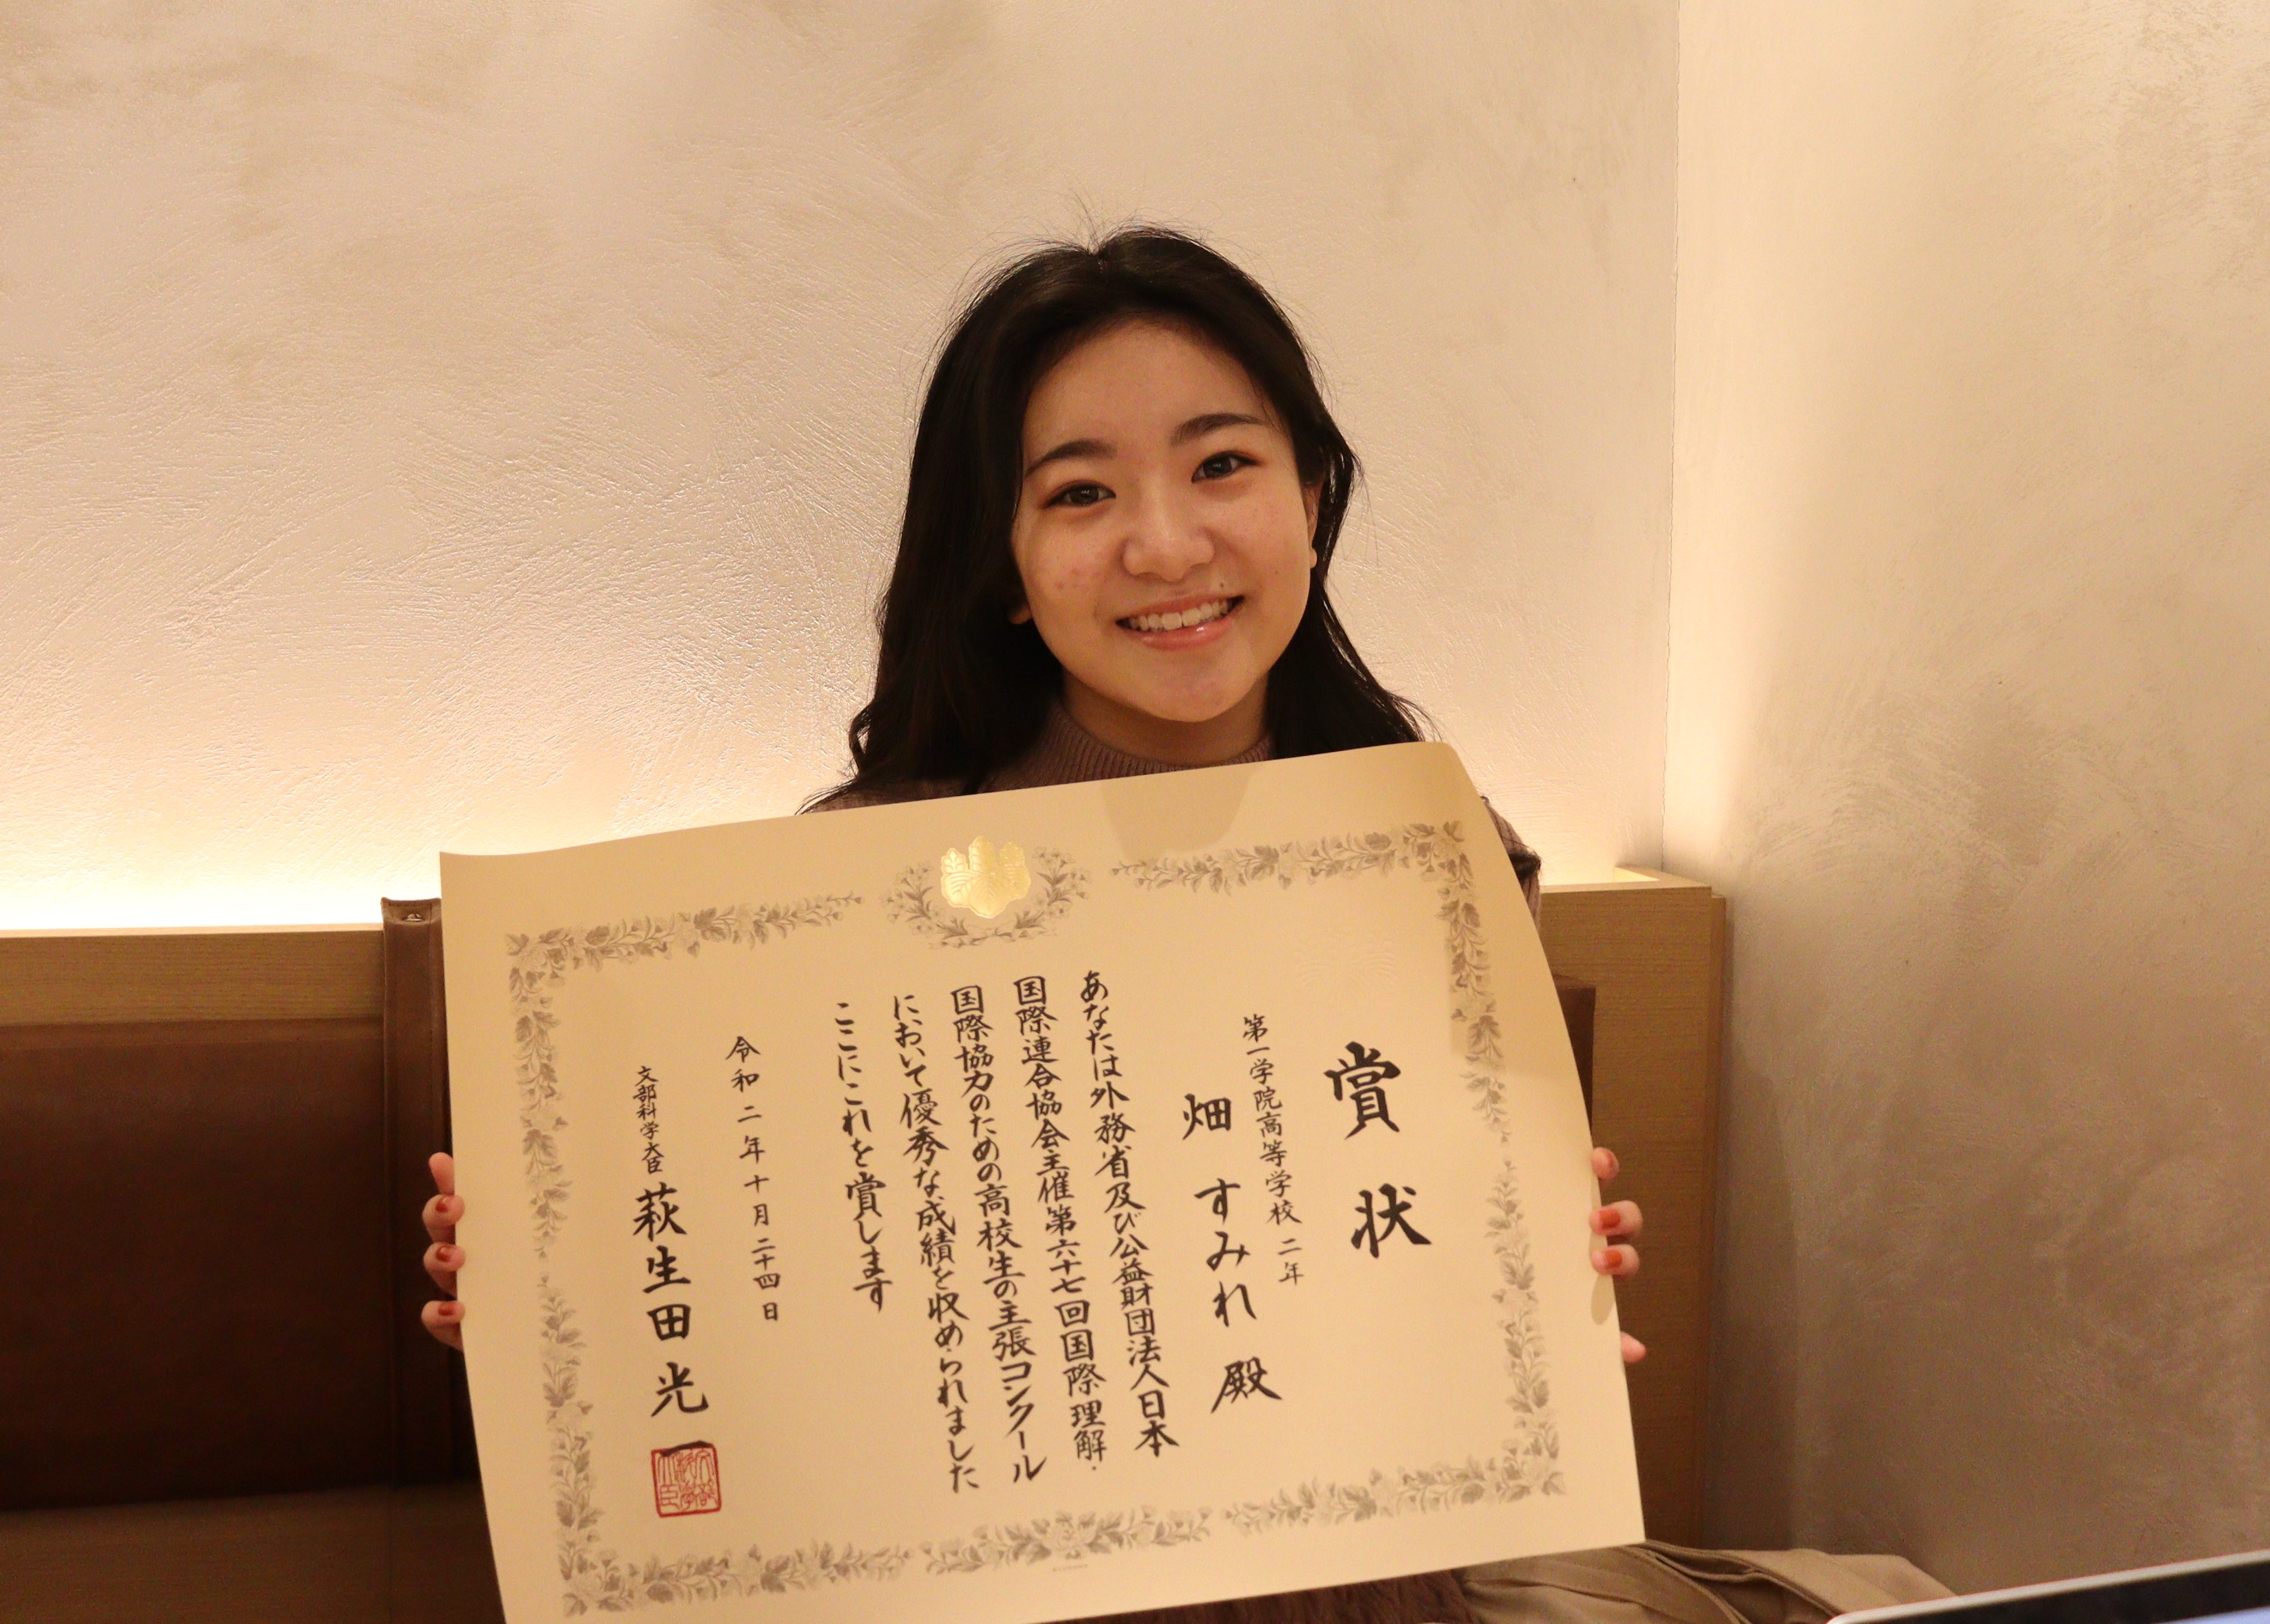 賞状
第一学院高等学校 二年
畑 すみれ 殿
あなたは外務省及び公益財団法人日本
国際連合協会主催第六十七回国際理解・
国際協力のための高校生の主張コンクール
において優秀な成績を収められました
ここにこれを賞します
令和二年十月二十四日
文部科学大臣 萩生田光一